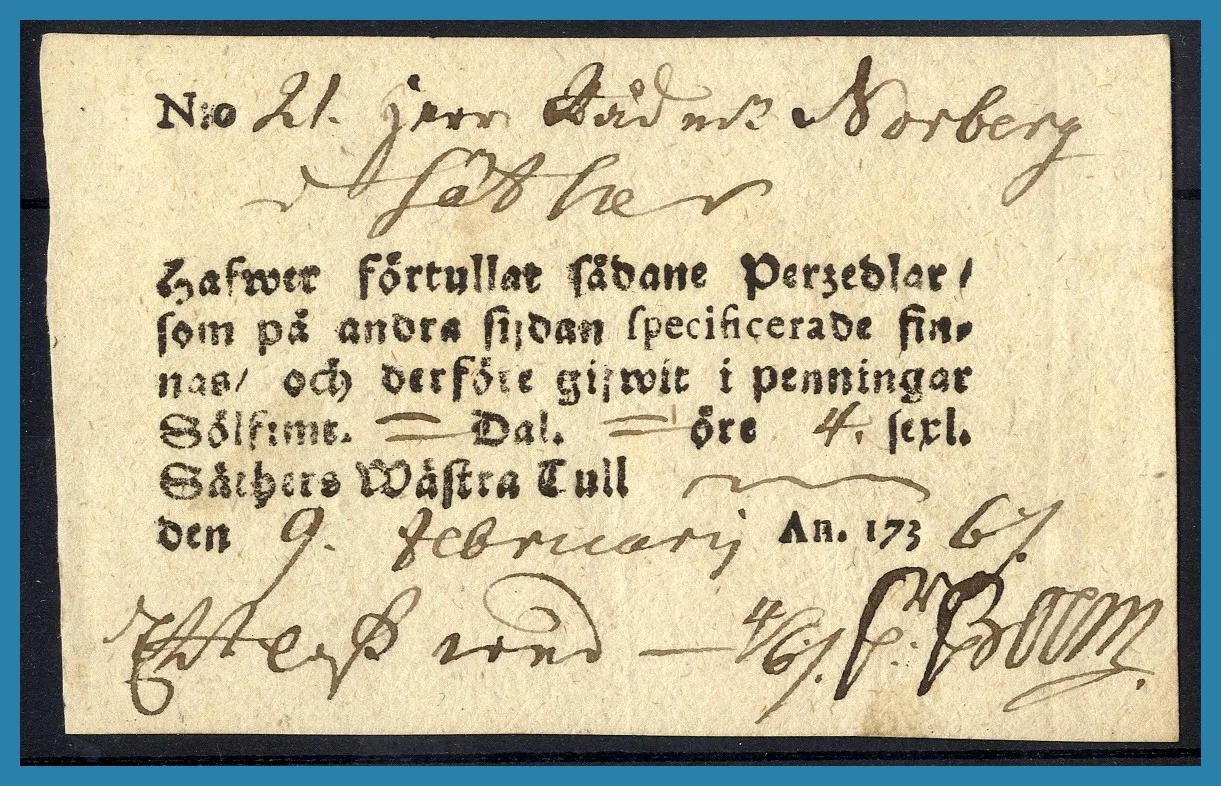 N:o 21. Herr Rådm: Norberg
i Säther
Hafwer förtullat sådane Perzedlar/
som på andra sijdan specificerade fin-
nas/ och derföre gifwit i penningar
Sölf:mt. = Dal. = öre 4. sexl.
Säthers Wästra Tull
den 9. Februarij An. 173 6/.
Ett laß wed — 4/6/. Boom.